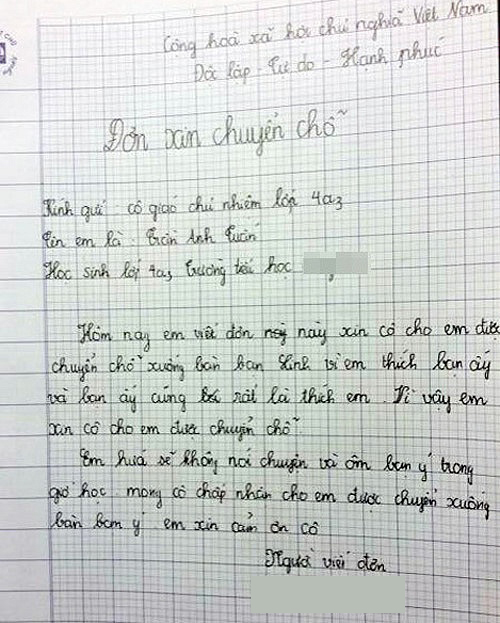 Công hoà xã hội chủ nghĩa Việt Nam
Độc lập - Tự do - Hạnh phúc
Đơn xin chuyển chỗ
Kính gửi cô giáo chủ nhiệm lớp 4a3
Tên em là : Trần Anh Tuấn
Học sinh lớp 4a3 trường tiểu học
Hôm nay em viết đơn này xin cô cho em được
chuyển chỗ xuống bàn bạn Linh vì em thích bạn ấy
và bạn ấy cũng rất là thích em . Vì vậy em
xin cô cho em được chuyển chỗ.
Em huá sẽ không nói chuyện và ôm bạn ý trong
giờ học. mong cô chấp nhân cho em được chuyện xuống
bàn bạn ý em xin cảm ơn cô
Người viết đơn